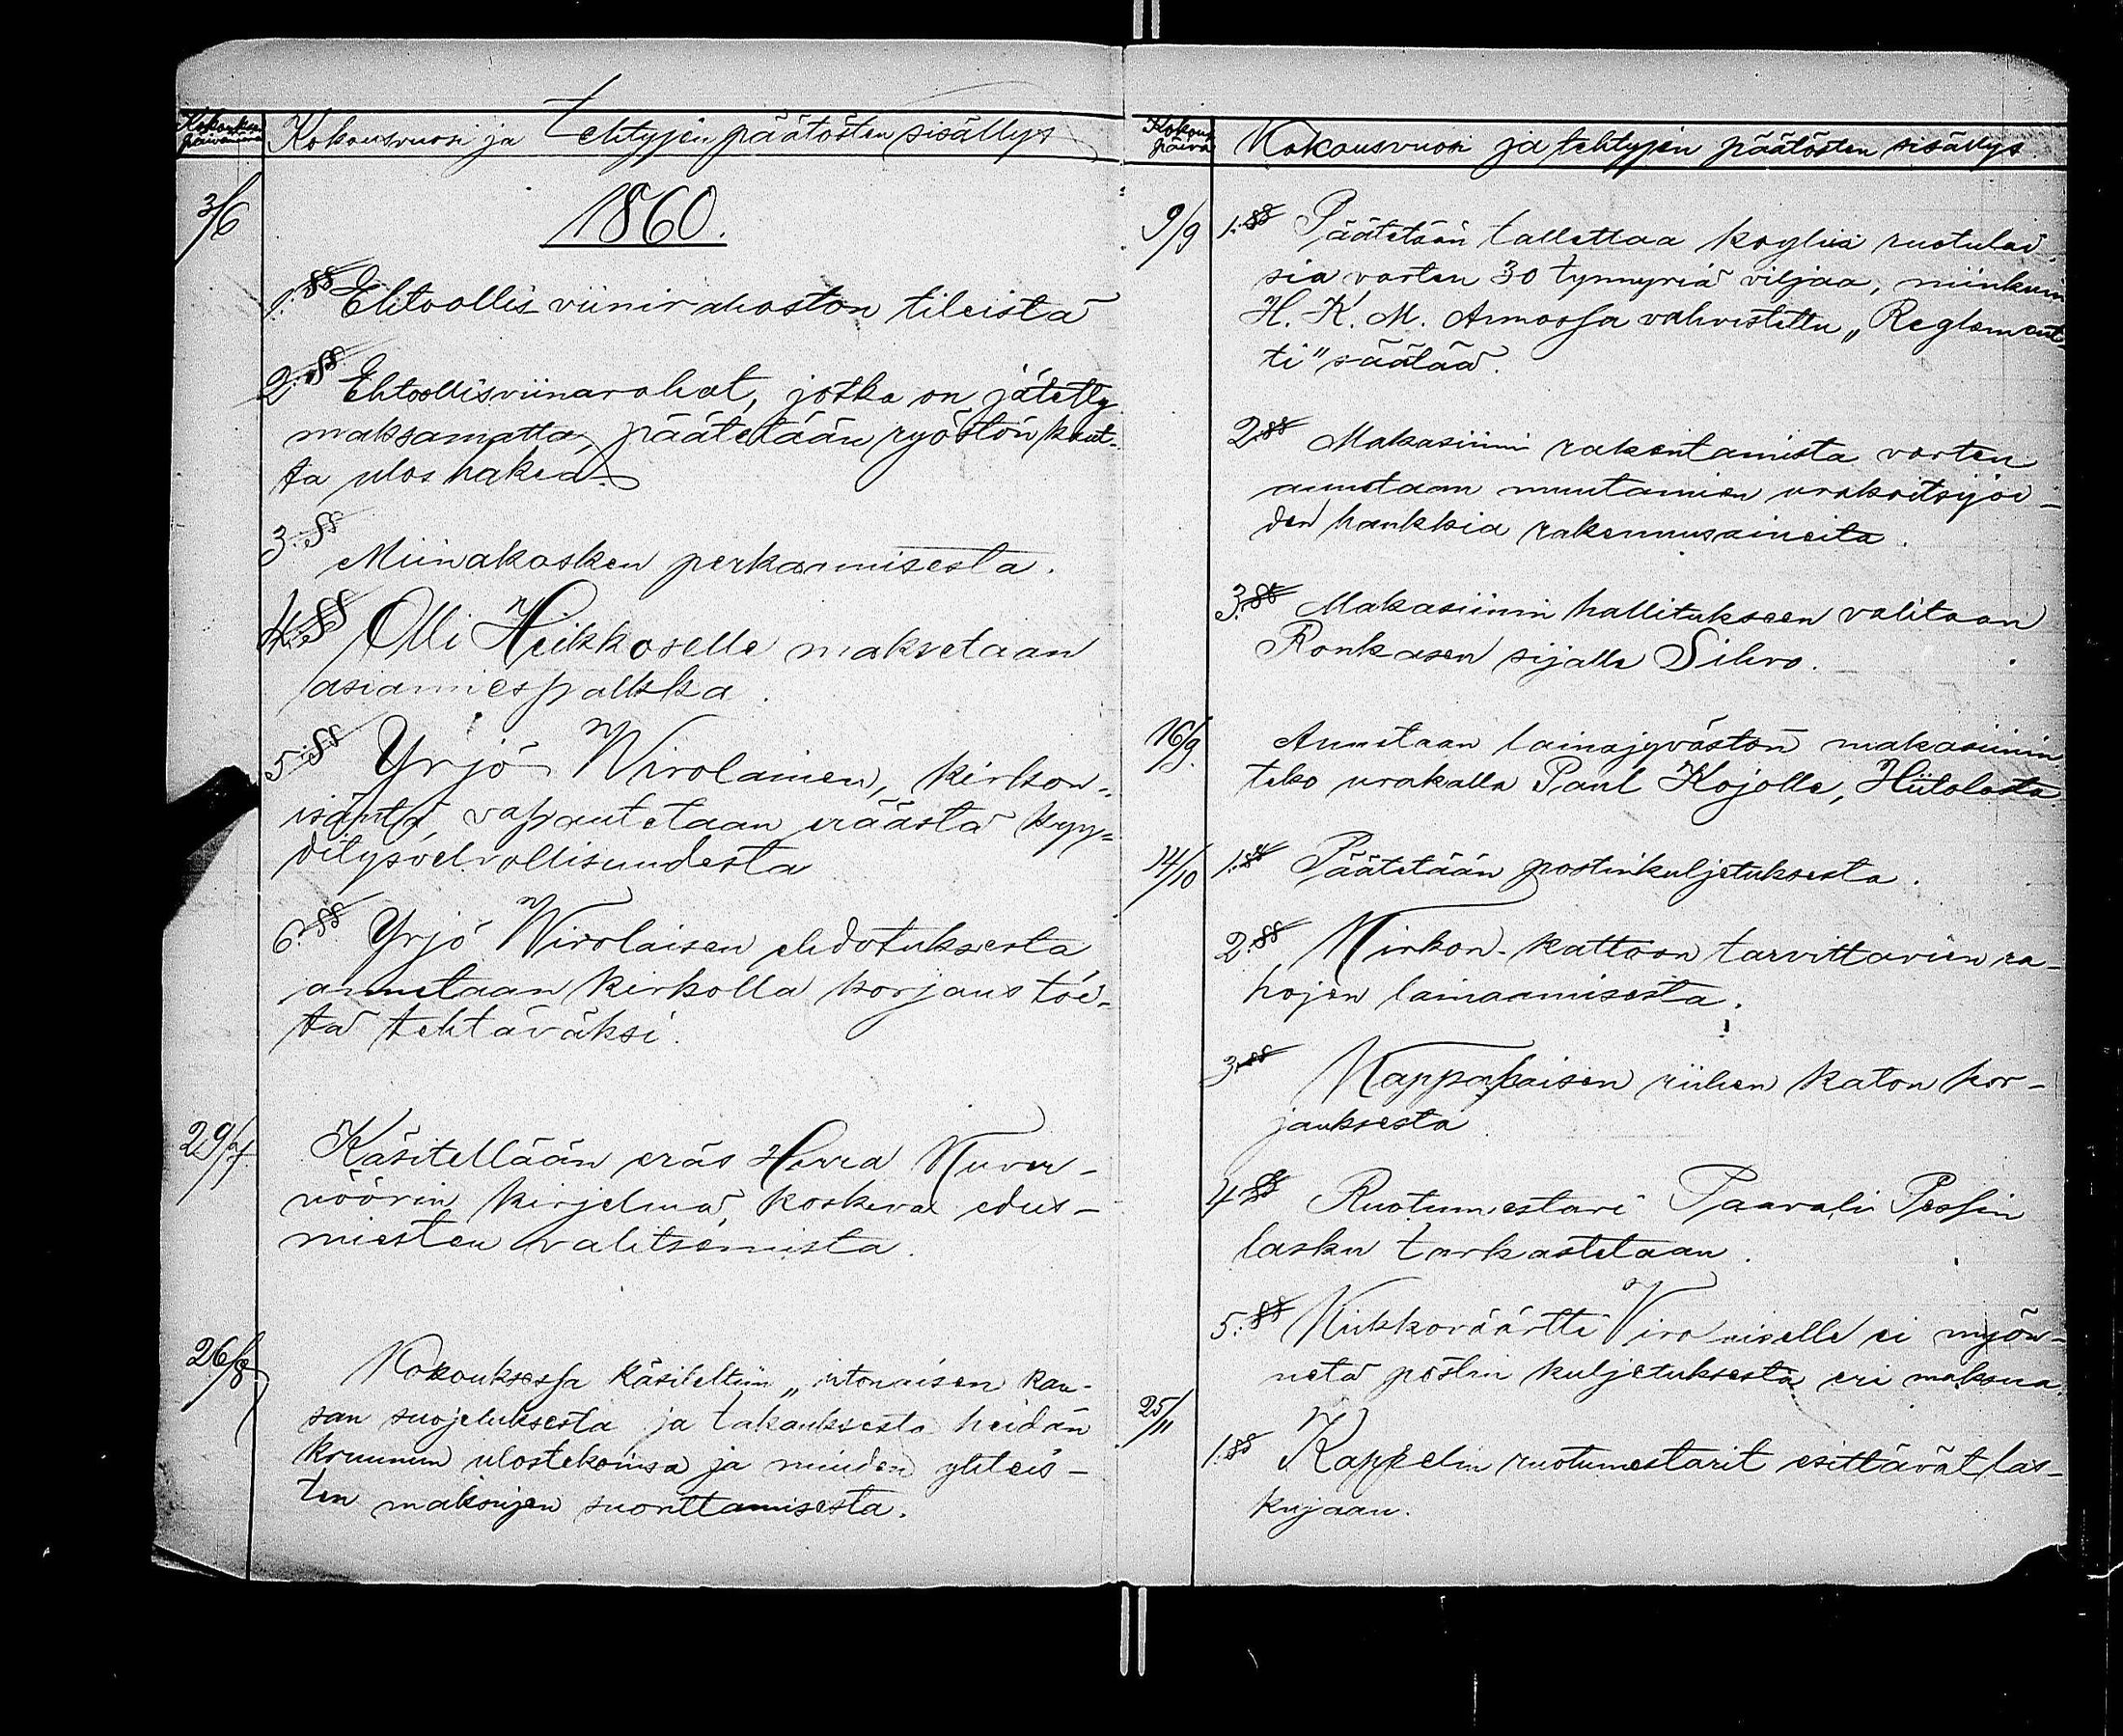 Kokouksen päivämäärä
Kokousvuosi ja tehtyjen päätösten sisällys
3/6
1860.
1.§§ Ehtoollisviinirahaston tileistä
2.§§ Ehtoollisviinarahat, jotka on jätetty
maksamatta, päätetään ryöstön kaut-
ta ulos hakea.
3.§§
Miinakosken perkaamisesta.
4.§§ Olli Heikkoselle maksetaan
asiamiespalkka.
5.§§ Yrjö Wirolainen, kirkon-
isäntä, vapautetaan eräästä kyy-
ditysvelvollisuudesta
6.§§ Yrjö Wirolaisen ehdotuksesta
annetaan kirkolla korjaus töi-
tä tehtäväksi.
29/7.
Käsitellään eräs Herra Kuver-
nöörin kirjelmä, koskeva edus-
miesten valitsemista.
26/8
Kokouksessa käsiteltiin „irtonaisen kan-
san suojeluksesta ja takauksesta heidän
kruunun ulostekoinsa ja muiden yhteis-
ten maksujen suorittamisesta.
Kokous päivä
Kokousvuosi ja tehtyjen päätösten sisällys
9/9 1.§§ Päätetään tallettaa köyhiä ruotulai-
sia varten 30 tynnyriä viljaa, niinkuin
H. K. M. Armossa vahvistettu „Reglement-
ti" säätää.
2.§§ Makasiinin rakentamista varten
annetaan muutamien urakoitsijoi-
den hankkia rakennusaineita.
3.§§ Makasiinin hallitukseen valitaan
Ronkasen sijalle Sihvo.
16/9. Annetaan lainajyvästön makasiinin
teko urakalla Paul Kojolle, Hiitolasta
14/10 1.§§ Päätetään postinkuljetuksesta.
2.§§ Kirkon-kattoon tarvittavien ra-
hojen lainaamisesta.
3.§§ Kappalaisen riihen katon kor-
jauksesta
4.§§ Ruotumestari Paavali Pessin
lasku tarkastetaan.
5.§§ Kirkkoväärtti Vironiselle ei myön-
netä postin kuljetuksesta eri maksua.
25/11
1.§§ Kappelin ruotumestarit esittävät las-
kujaan.